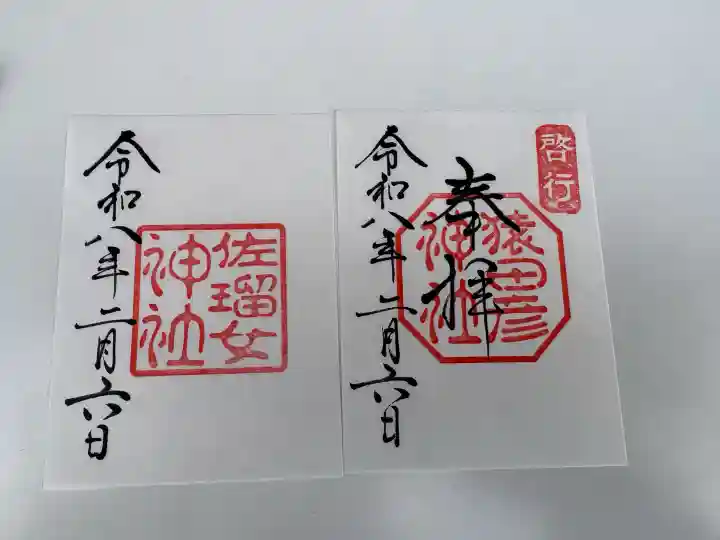 啓行
奉拝
猿田彦
神社
令和八年二月六日
佐瑠女
神社
令和八年二月六日